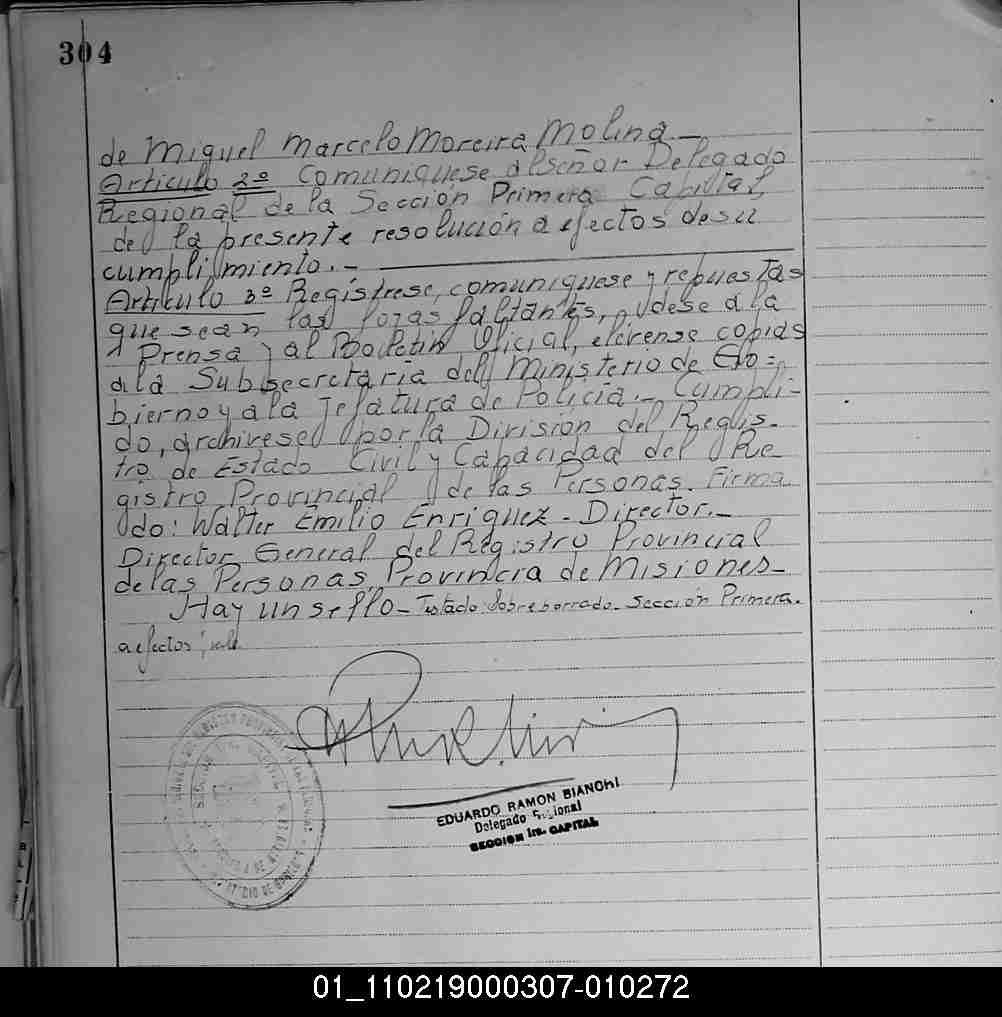 304
de Miguel Marcelo Moreira Molina.-
Artículo 2º Comuniquese al Señor Delegado
Regional de la Sección Primera Capital,
de la presente resolución a efectos de su
cumplimiento.-
Artículo 3º Registrese, comuniquese y repuestas
que sean las fojas faltantes, dese a la
Prensa y al Boletin Oficial, elévense copias
a la Subsecretaria del Ministerio de Go=
bierno y a la Jefatura de Policia.- Cumpli-
do, archivese por la División del Regis-
tro de Estado Civil y Capacidad del Re
gistro Provincial de las Personas. Firma
do: Walter Emilio Enriquez - Director.-
Director General del Registro Provincial
de las Personas Provincia de Misiones-
Hay un sello- Testado: Sobreborrado- Sección Primera.
a efectos; vale
EDUARDO RAMON BIANCHI
Delegado Regional
SECCION 1ra. CAPITAL
01_110219000307-010272